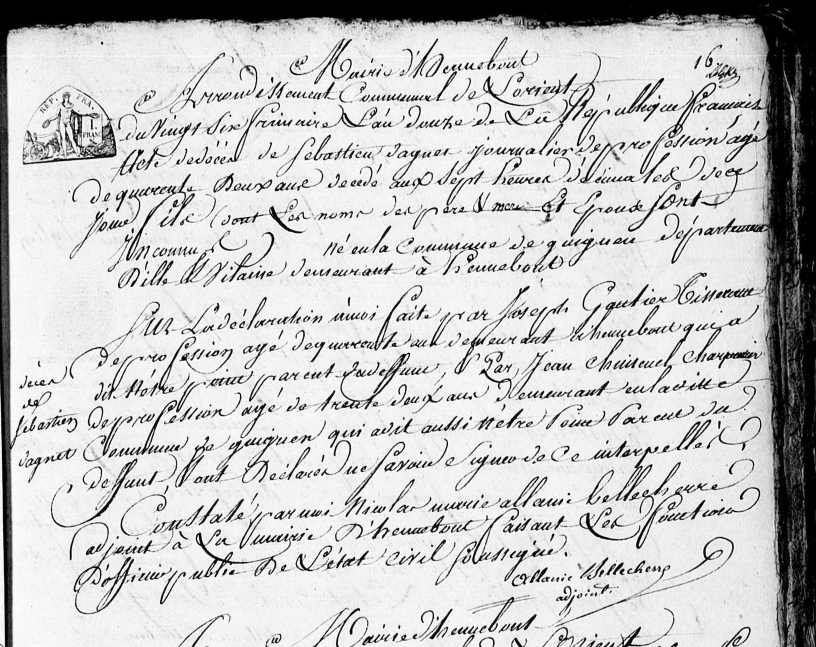 16
Mairie d'hennebont
Arrondissement Communal de Lorient
du Vingt Six frimaire L'an douze de La République francaise
REP. FRA.
1. FRANC
Acte de décès de Sebastien dagnet journalier de profession agé
de quarente deux ans decedé aux sept heures du matin de ce
jour fils dont Les noms des père & mere Et Epouse Sont
Inconnu né en la Commune de guignen departement
D'ille & Vilaine demeurant à hennebont
Sur La déclaration à moi faite par Joseph Gautier Tisserant
de profession agé de quarente ans demeurant à hennebont qui a
dit Nétre point parent du deffunt, & Par Jean Chuisnel Charpentier
de profession agé de trente deux ans demeurant en la ditte
Commune de guignen qui a dit aussi Nétre Point Parent du
deffunt, Ont Déclarés ne Savoir Signer de Ce interpellés
décès
de
Sebastien
dagnet
Constaté par moi Nicolas marie allanic bellecherre
adjoint à La mairie D'hennebont faisant Les fonctions
D'officier public De L'état Civil Soussigné.
allanic Bellecherre
adjoint.
Mairie d'hennebont